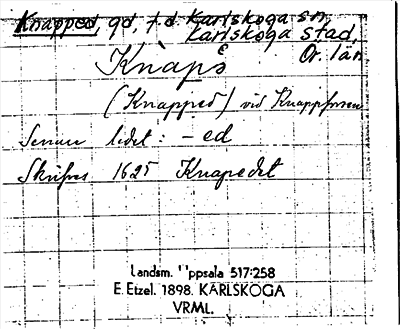 Knapped, gd, f.d. Karlskoga sn,
Karlskoga stad,
Ör. län
Knàps
(Knapped) vid Knappforsen
Senare ledet: -ed
Skrifves 1625 Knapedet
Landsm. Uppsala 517:258
E. Etzel. 1898. KARLSKOGA
VRML.